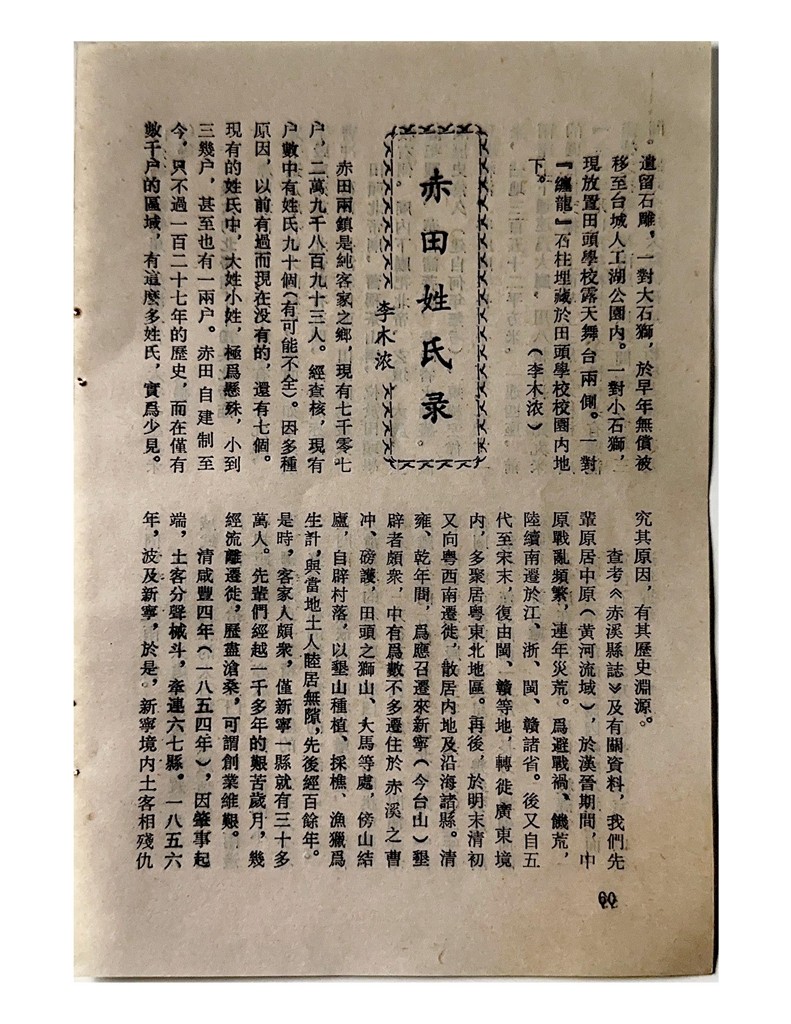 遺留石雕，一對大石獅，於早年無償被
移至台城人工湖公園内。一對小石獅，
現放置田頭學校露天舞台兩側。一對
『纏龍』石柱埋藏於田頭學校校園内地
下。
（李木浓）
赤田姓氏录
李木浓
赤田兩鎮是純客家之鄉，現有七千零七
户，二萬九千八百九十三人。經查核，現有
户數中有姓氏九十個（有可能不全）。因多種
原因，以前有過而現在没有的，還有七個。
現有的姓氏中，大姓小姓，極爲懸殊，小到
三幾户，甚至也有一兩户。赤田自建制至
今，只不過一百二十七年的歷史，而在僅有
數千户的區域，有這麽多姓氏，實爲少見。
究其原因，有其歷史淵源。
查考《赤溪縣誌》及有關資料，我們先
輩原居中原（黄河流域），於漢晉期間，中
原戰亂頻繁，連年災荒。爲避戰禍、饑荒，
陸續南遷於江、浙、閩、贛諸省。後又自五
代至宋末，復由閩、贛等地，轉徙廣東境
内，多聚居粤東北地區。再後，於明末清初
又向粤西南遷徙，散居内地及沿海諸縣。清
雍、乾年間，爲應召遷來新寧（今台山）墾
辟者頗衆，中有爲數不多遷住於赤溪之曹
冲、磅護，田頭之獅山、大馬等處，傍山結
廬，自辟村落，以墾山種植、採樵、漁獵爲
生計，與當地土人睦居無隙，先後經百餘年。
是時，客家人頗衆，僅新寧一縣就有三十多
萬人。先輩們經越一千多年的艱苦歲月，幾
經流離遷徙，歷盡滄桑，可謂創業維艱。
清咸豐四年（一八五四年），因肇事起
端，土客分聲械斗，牽連六七縣。一八五六
年，波及新寧，於是，新寧境内土客相殘仇
60